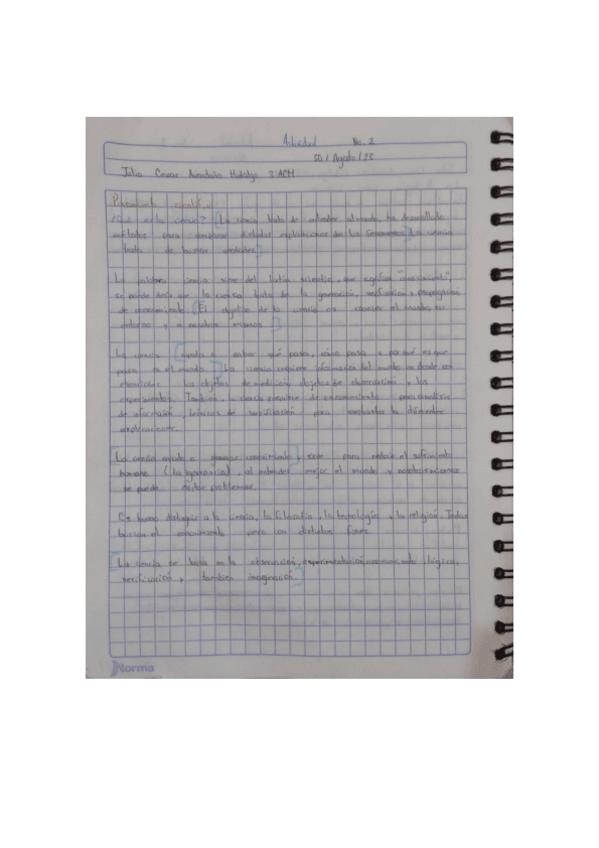 Actividad No. 2
30 / Agosto / 23
Julio Cesar Hidalgo 3°ACM
Pensamiento científico
¿Qué es la ciencia? [La ciencia trata de entender el mundo, ha desarrollado
métodos para comparar distintas explicaciones de los fenomenos.] La ciencia
trata de buscar verdades]
La palabra ciencia viene del latín scientia, que significa "conocimiento",
se puede decir que la ciencia trata de la generación, verificación y propagación
de conocimiento. [El objetivo de la ciencia es conocer el mundo, su
entorno y a nosotros mismos.]
La ciencia [ayuda a saber qué pasa, cómo pasa y por qué es que
pasa en el mundo.] La ciencia requiere información del mundo en donde son
esenciales los objetos de medición, objetos de observación y los
experimentos. También la ciencia requiere de razonamiento para analisis
de información, técnicas de verificación para las diferentes
explicaciones.
[La ciencia ayuda a generar conocimiento], sirve para reducir el sufrimiento
humano (la ignorancia), al entender mejor el mundo y nosotros mismos
se puede evitar problemas.
Es bueno distinguir a la ciencia, la filosofía, la tecnología y la religión. Todas
buscan el conocimiento pero con distintos fines.
[La ciencia se basa en la observación, experimentación, razonamiento lógico,
verificación y también imaginación.]
Norma